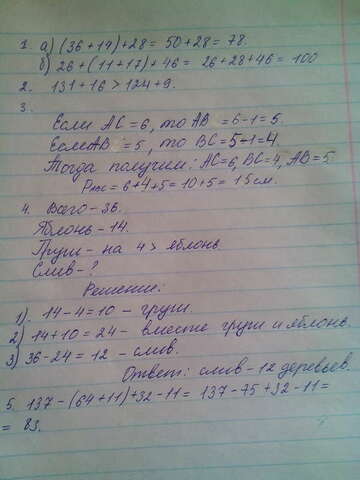 1. а) (36+14)+28= 50+28= 78.
б) 26+(11+17)+46= 26+28+46= 100
2. 131+16>124+9.
3.
Если АС=6, то АВ=6-1=5.
Если АВ=5, то ВС=5-1=4.
Тогда получим: АС=6, ВС=4, АВ=5
=6+4+5=10+5=15см.
4. Всего-36.
Яблонь-14.
Груш- на 4> яблонь.
Слив-?
Решение:
1). 14-4=10 - груш.
2) 14+10=24- вместе груш и яблонь.
3) 36-24=12 - слив.
Ответ: слив-12 деревьев.
5. 137-(64+11)+32-11= 137-75+32-11=
= 83.